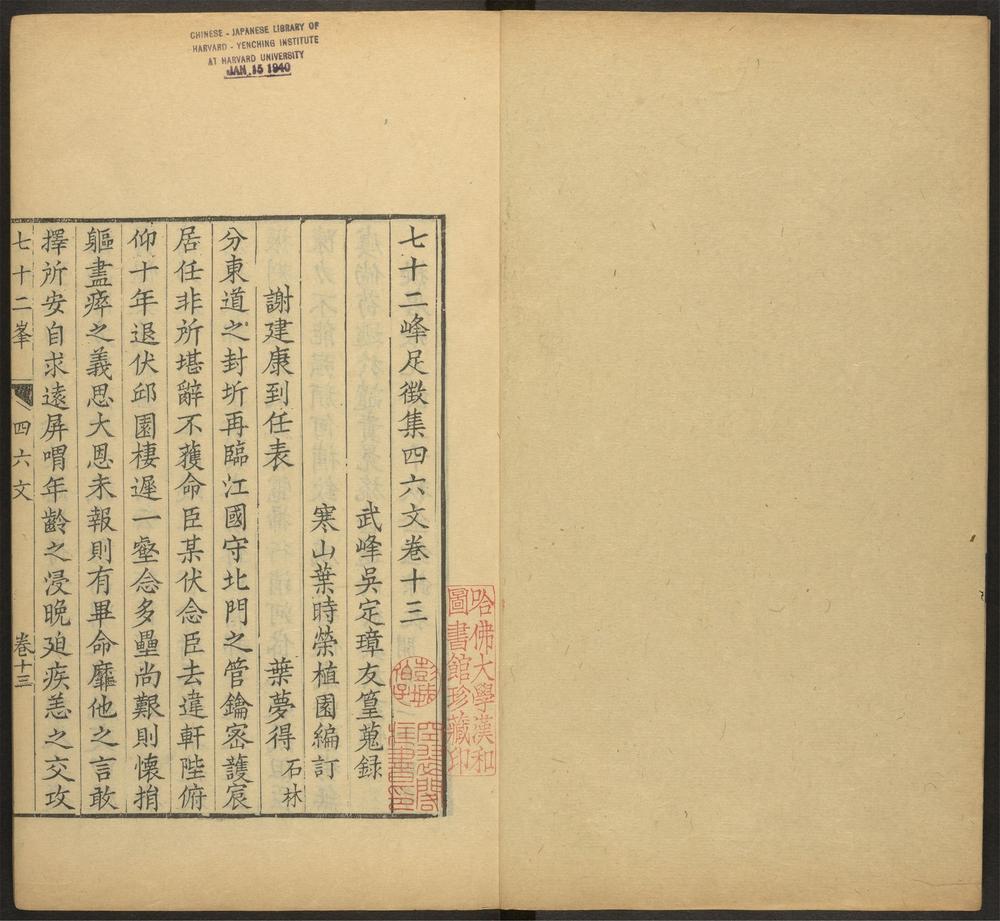 CHINESE - JAPANESE LIBRARY OF
HARVARD - YENCHING INSTITUTE
AT HARVARD UNIVERSITY
JAN 15 1940
七十二峰足徵集四六文卷十三
武峰吳定璋友篁蒐録
寒山葉時榮植園編訂
謝建康到任表 葉夢得 石林
分東道之封圻再臨江國守北門之管鑰宻護宸
居任非所堪辭不獲命臣某伏念臣去違軒陛俯
仰十年退伏邱園棲遲一壑念多壘尚艱則懷捐
軀盡瘁之義思大恩未報則有畢命靡他之言敢
擇所安自求遠屏喟年齡之浸晚廹疾恙之交攻
七十二峯 四六文 卷十三
哈佛大學漢和
圖書館珍藏印